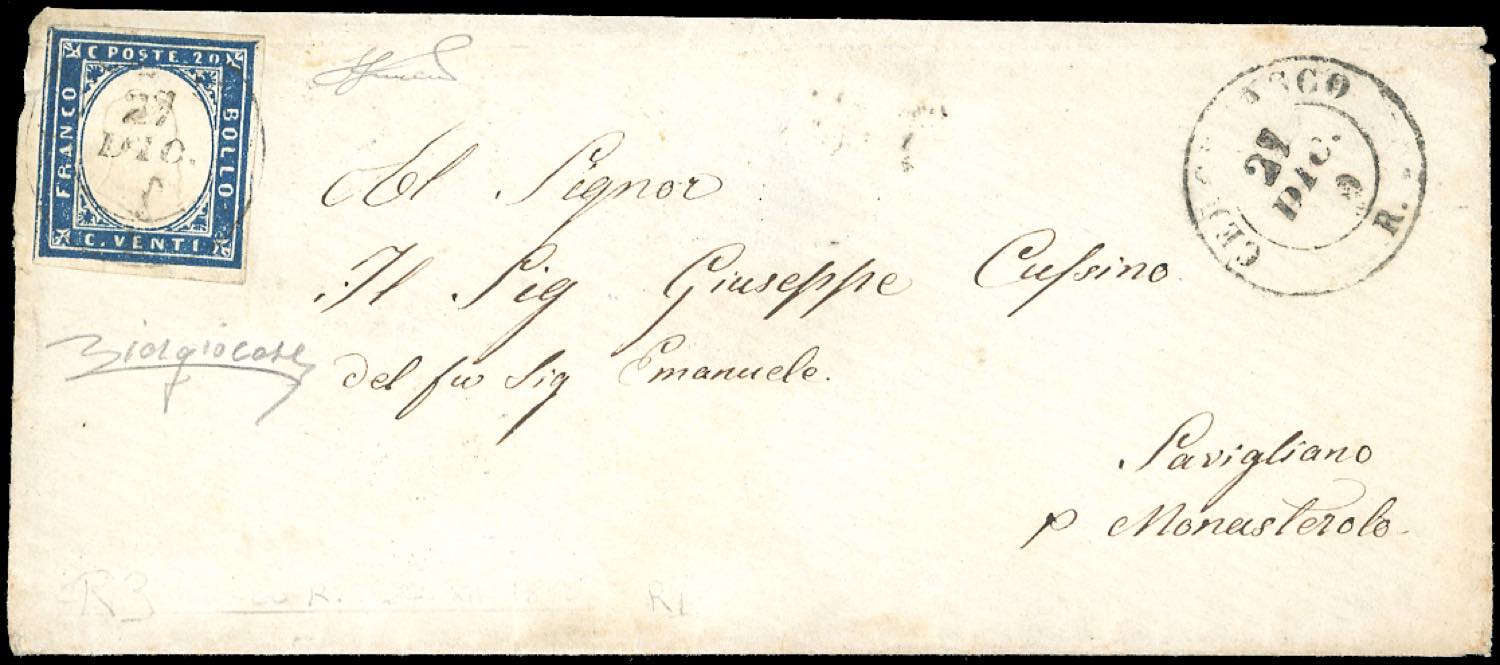 C POSTE 20
FRANCO
BOLLO
C. VENTI
27
DIC.
Al Signor
Il Sig Giuseppe Cussino
del fu Sig Emanuele.
Savigliano
p Monasterolo.
27
DIC.
R.
R3
R1